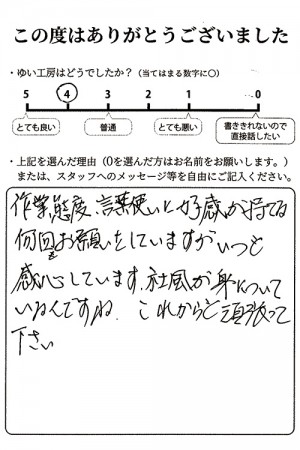 この度はありがとうございました
・ゆい工房はどうでしたか？（当てはまる数字に○）
5 4 3 2 1 0
とても良い 普通 とても悪い 書ききれないので直接話したい
・上記を選んだ理由（0を選んだ方はお名前をお願いします。）
または、スタッフへのメッセージ等を自由にご記入ください。
作業態度、言葉使いに好感が持てる
何回もお願いをしていますがいつも
感心しています。社風が身について
いるんですね。これからも頑張って
下さい